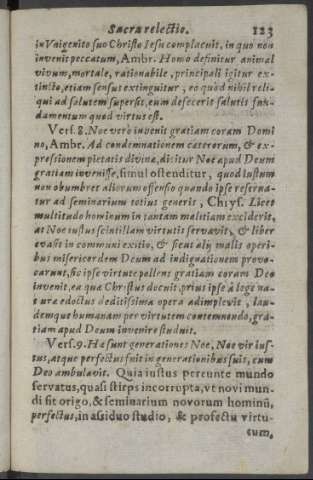 Sacra relectio. 123
in Vnigenito suo Christo Iesu complacuit, in quo non
invenit peccatum, Ambr. Homo definitur animal
vivum, mortale, rationabile, principali igitur ex-
tincto, etiam sensus extinguitur, eo quòd nihil reli-
qui ad salutem supersit, cum defecerit salutis fun-
damentum quod virtus est.
Vers. 8. Noe verò invenit gratiam coram Domi
no, Ambr. Ad condemnationem cæterorum, & ex-
pressionem pietatis divinæ, dicitur Noe apud Deum
gratiam invenisse, simul ostenditur, quod iustum
non obumbret aliorum offensio quando ipse reserva-
tur ad seminarium totius generis, Chrys. Licet
multitudo hominum in tantam malitiam exciderit,
at Noe iustus scintillam virtutis servavit, & liber
evasit in communi exitio, & sicut alij malis operi-
bus misericordem Deum ad indignationem provo-
carunt, sic ipse virtute pollens gratiam coram Deo
invenit, ea quæ Christus docuit, prius ipse à lege na-
turæ edoctus deditissima opera adimplevit, lau-
demque humanam per virtutem contemnendo, gra-
tiam apud Deum invenire studuit.
Vers. 9. Hæ sunt generationes Noe, Noe vir ius-
tus, atque perfectus fuit in generationibus suis, cum
Deo ambulavit. Quia iustus pereunte mundo
servatus, quasi stirps incorrupta, vt novi mun-
di sit origo, & seminarium novorum hominũ,
perfectus, in assiduo studio, & profectu virtu-
tum,